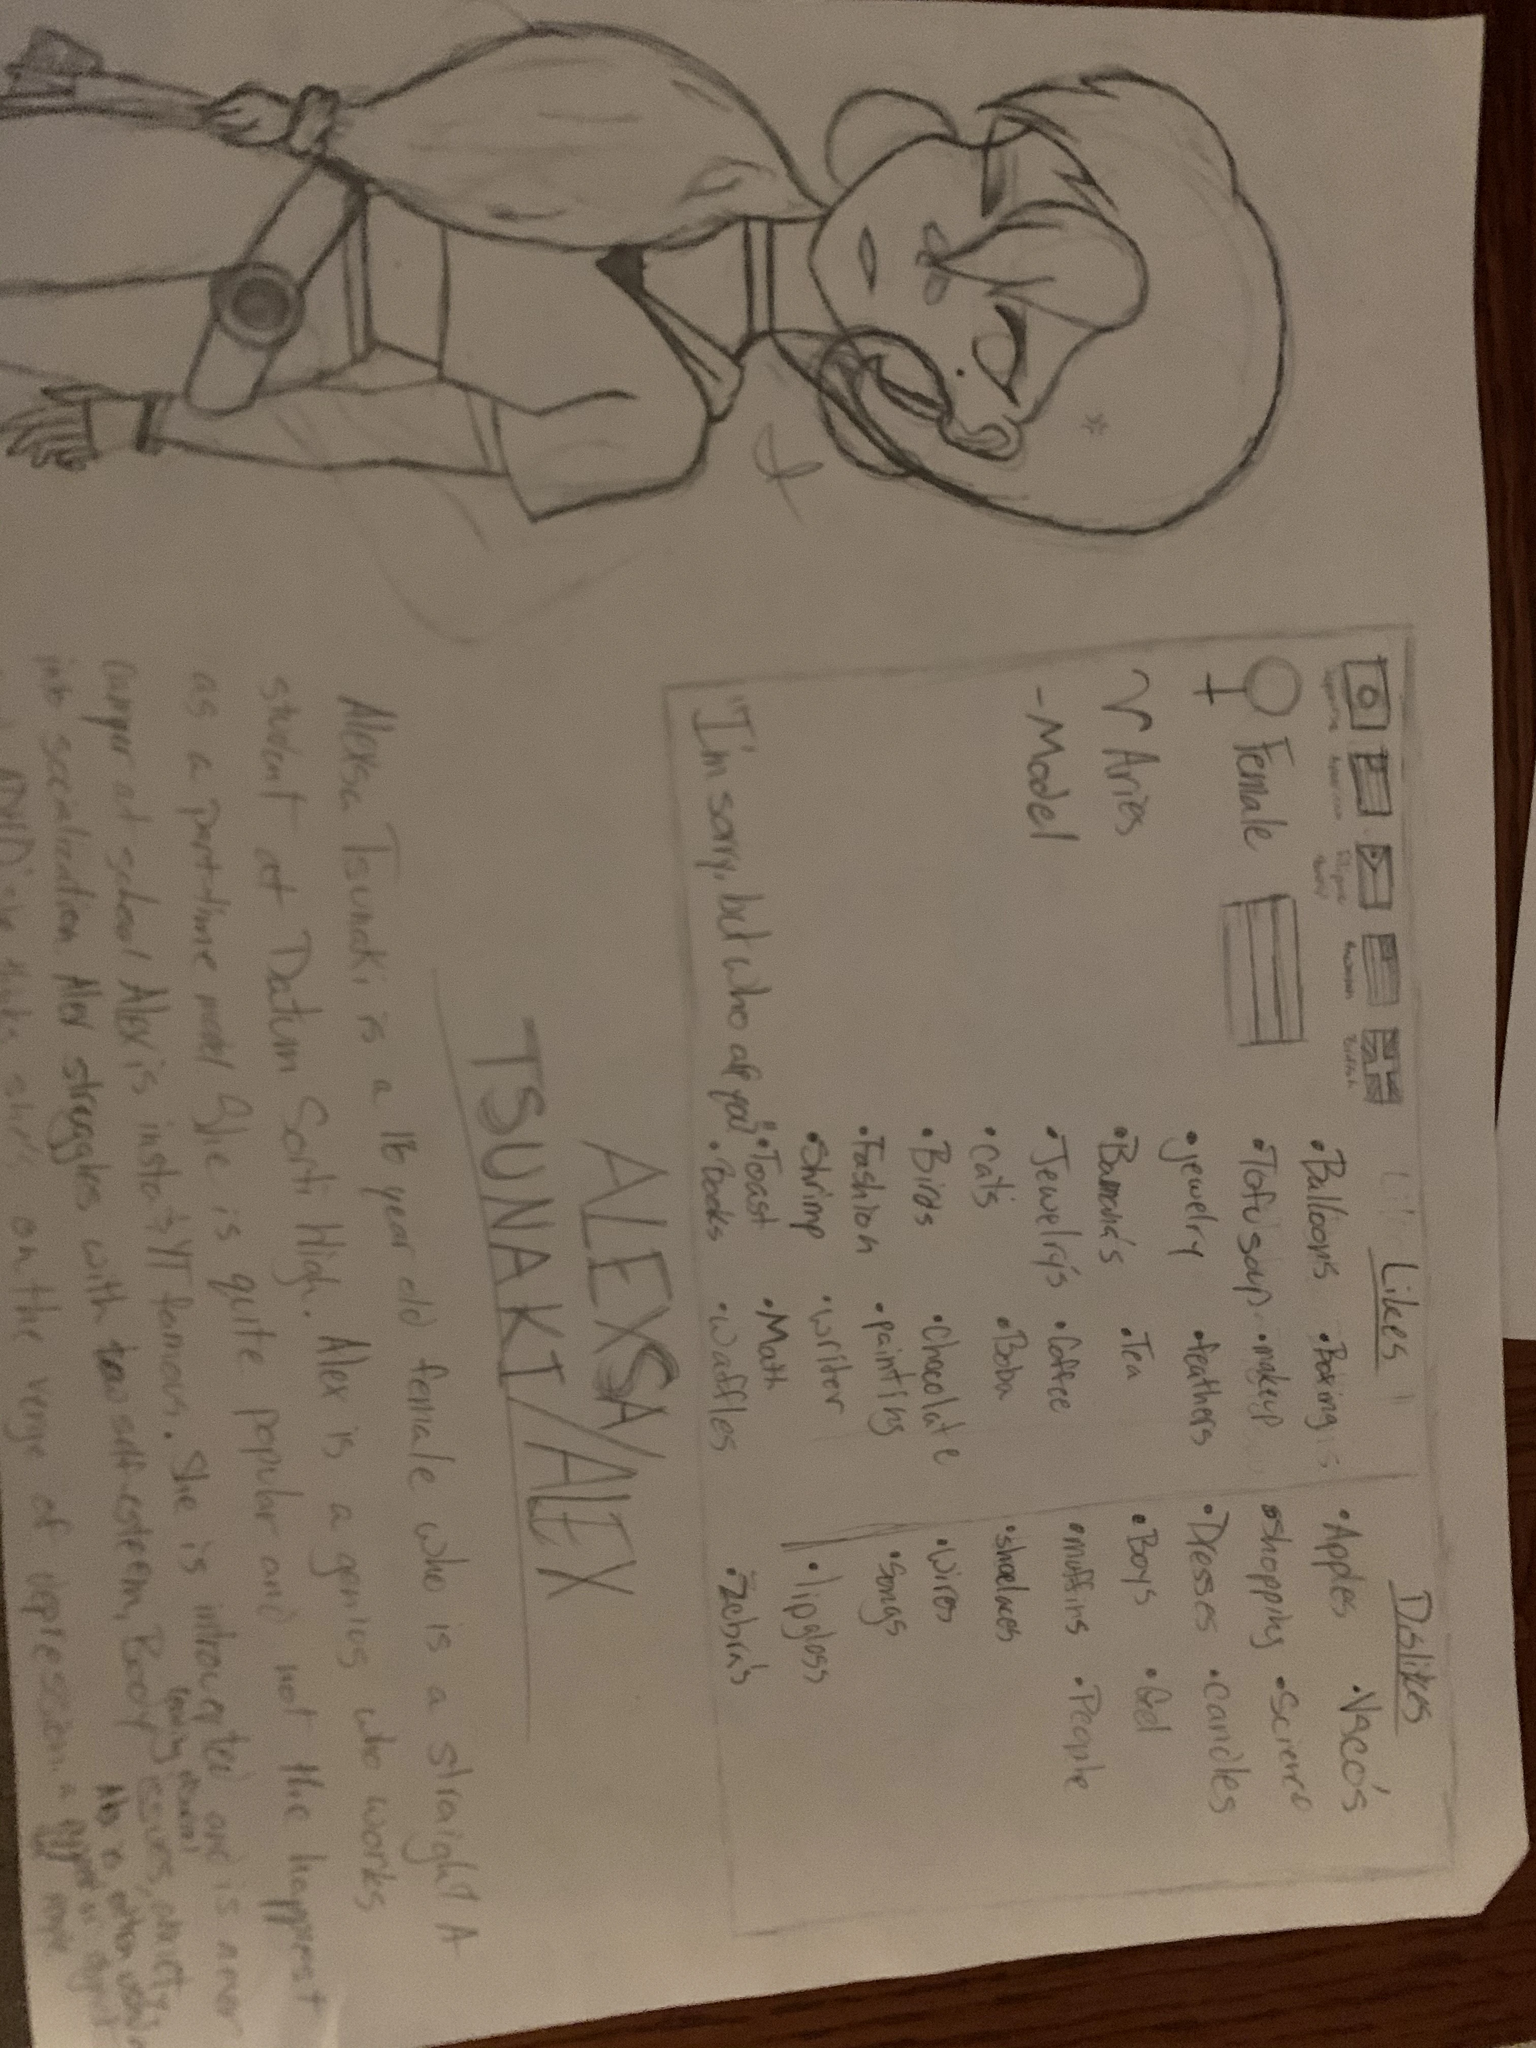 Likes
Dislikes
Female
Aries
-Model
"I'm sorry, but who are you?"
•Balloons •Boxing
•Tofu soup •makeup
•jewelry •feathers
•Banana's •Tea
•Jewelry's •Coffee
•cats •Boba
•Birds •Chocolate
•Fashion •painting
•Shrimp •writer
•Toast •Math
•Books •Waffles
•Apples •Vsco's
•shopping •Science
•Dresses •candles
•Boys •Gel
•muffins •People
•shoelaces
•wires
•Songs
•lipgloss
•Zebra's
ALEXSA/ALEX
TSUNAKI/
Alexsa Tsunaki is a 16 year old female who is a straight A
student at Datum Sorti High. Alex is a genius who works
as a partime model She is quite popular and not the happiest
camper at school Alex is insta & YT famous. She is introverted and is never
into socialization. Alex struggles with low self-esteem, Body issues, anxiety,
ADHD she thinks she's on the verge of depression.